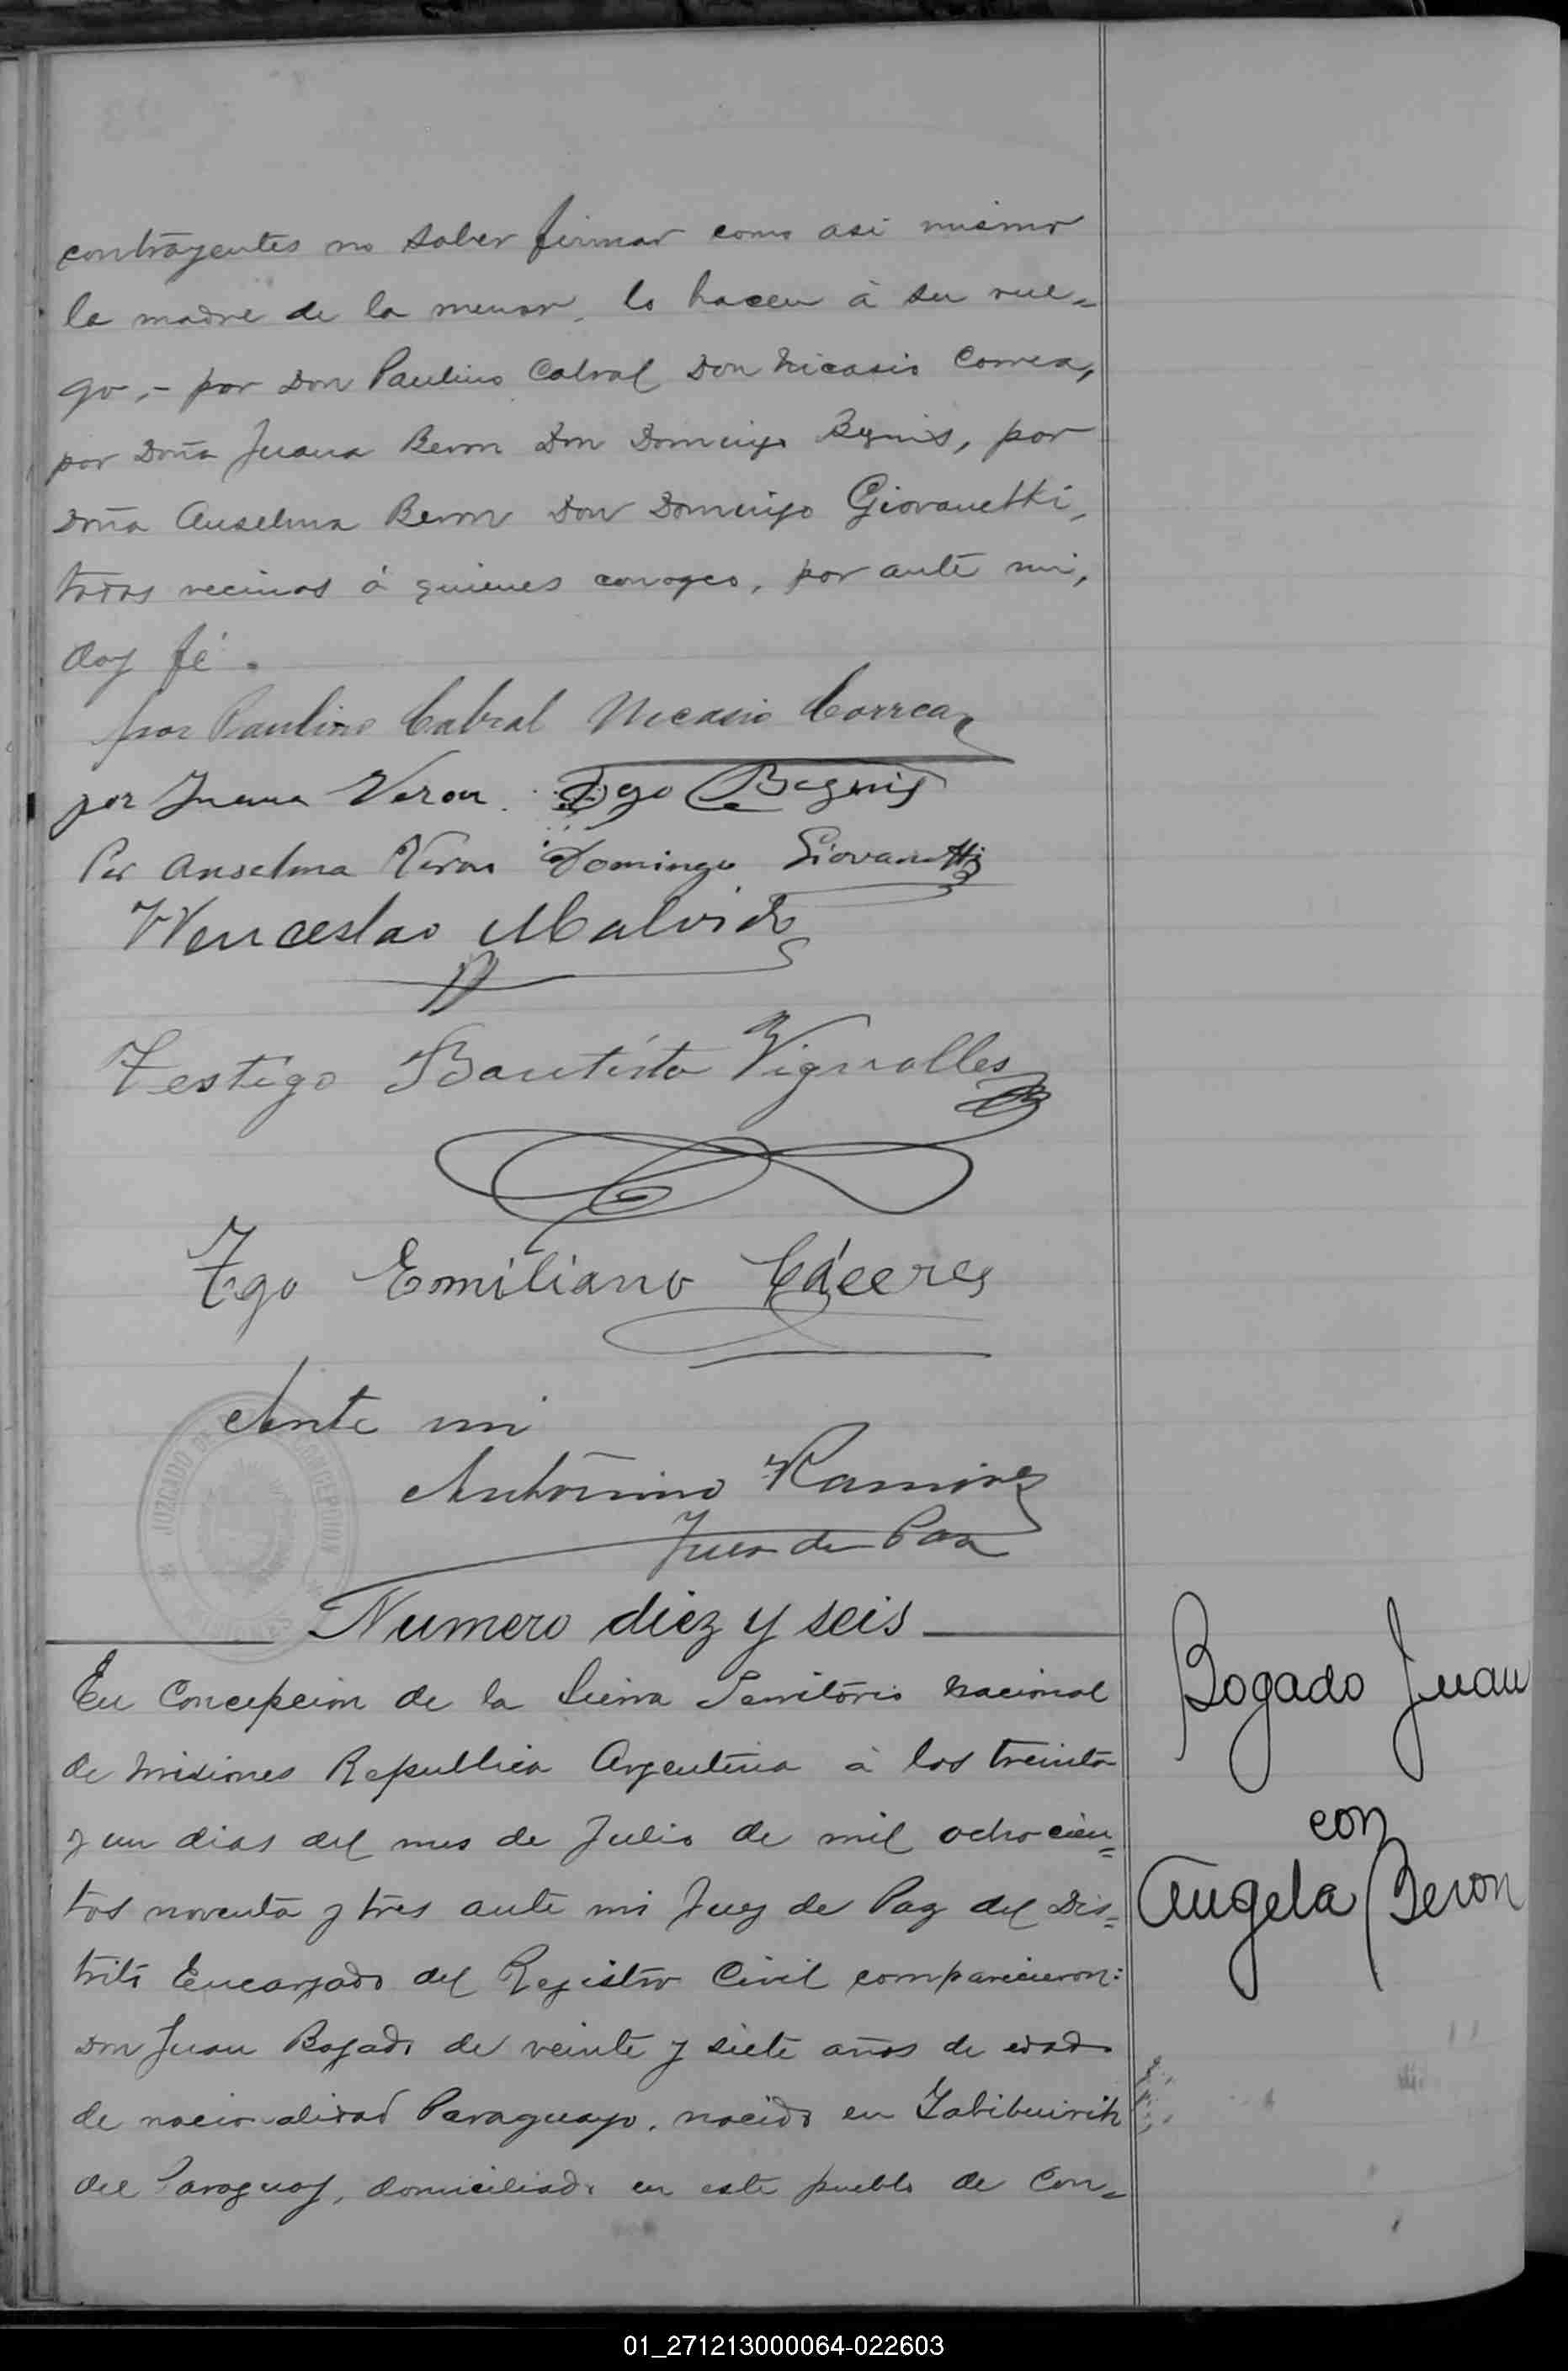 contrayentes no saber firmar como asi mismo
la madre de la menor, lo hacen á su rue=
go,- por Don Paulino Cabral Don Nicasio Correa,
por Doña Juana Beron Don Domingo Begnis, por
Doña Anselma Beron Don Domingo Giovanetti,
todos vecinos á quienes conozco, por ante mi,
doy fé.
por Paulino Cabral Nicasio Correa
por Juana Veron. Dgo Begnis
Por Anselma Veron Domingo Giovanetti
Wenceslao Malvido
Testigo Bautista Vignolles
Tgo Emiliano Cáceres
Ante mi
Antonino Ramirez
Juez de Paz
JUZGADO DE CONCEPCION
Numero diez y seis
En Concepcion de la Sierra Territorio Nacional
de Misiones Republica Argentina á los treinta
y un dias del mes de Julio de mil ochocien=
tos noventa y tres ante mi Juez de Paz del Dis=
trito Encargado del Registro Civil comparecieron:
Don Juan Bogado de veinte y siete años de edad
de nacionalidad Paraguayo, nacido en Yabibuirih
del Paraguay, domiciliado en este pueblo de Con=
Bogado Juan
con
Angela Beron
01_271213000064-022603